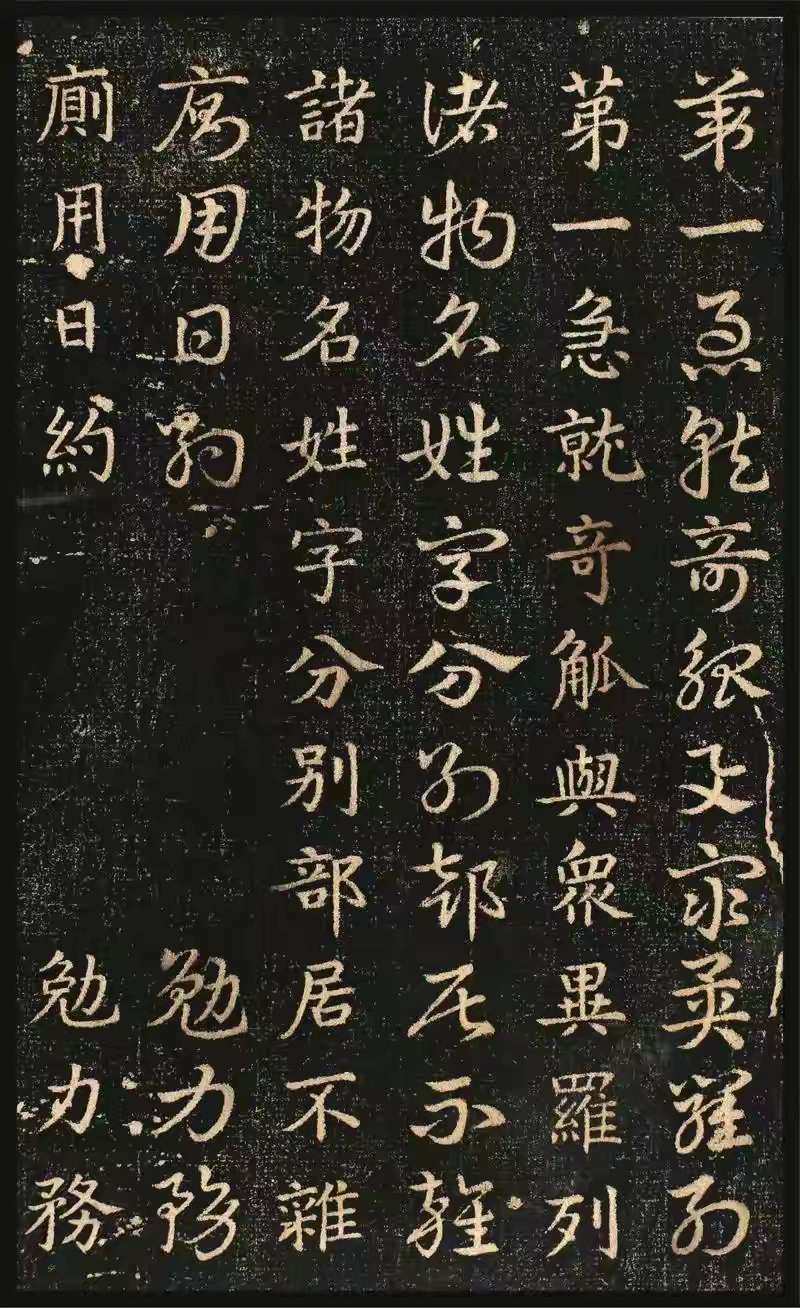 第一急就奇觚與衆異羅列
第一急就奇觚與衆異羅列
諸物名姓字分别部居不雜
諸物名姓字分别部居不雜
廁用日約 勉力務
廁用日約 勉力務